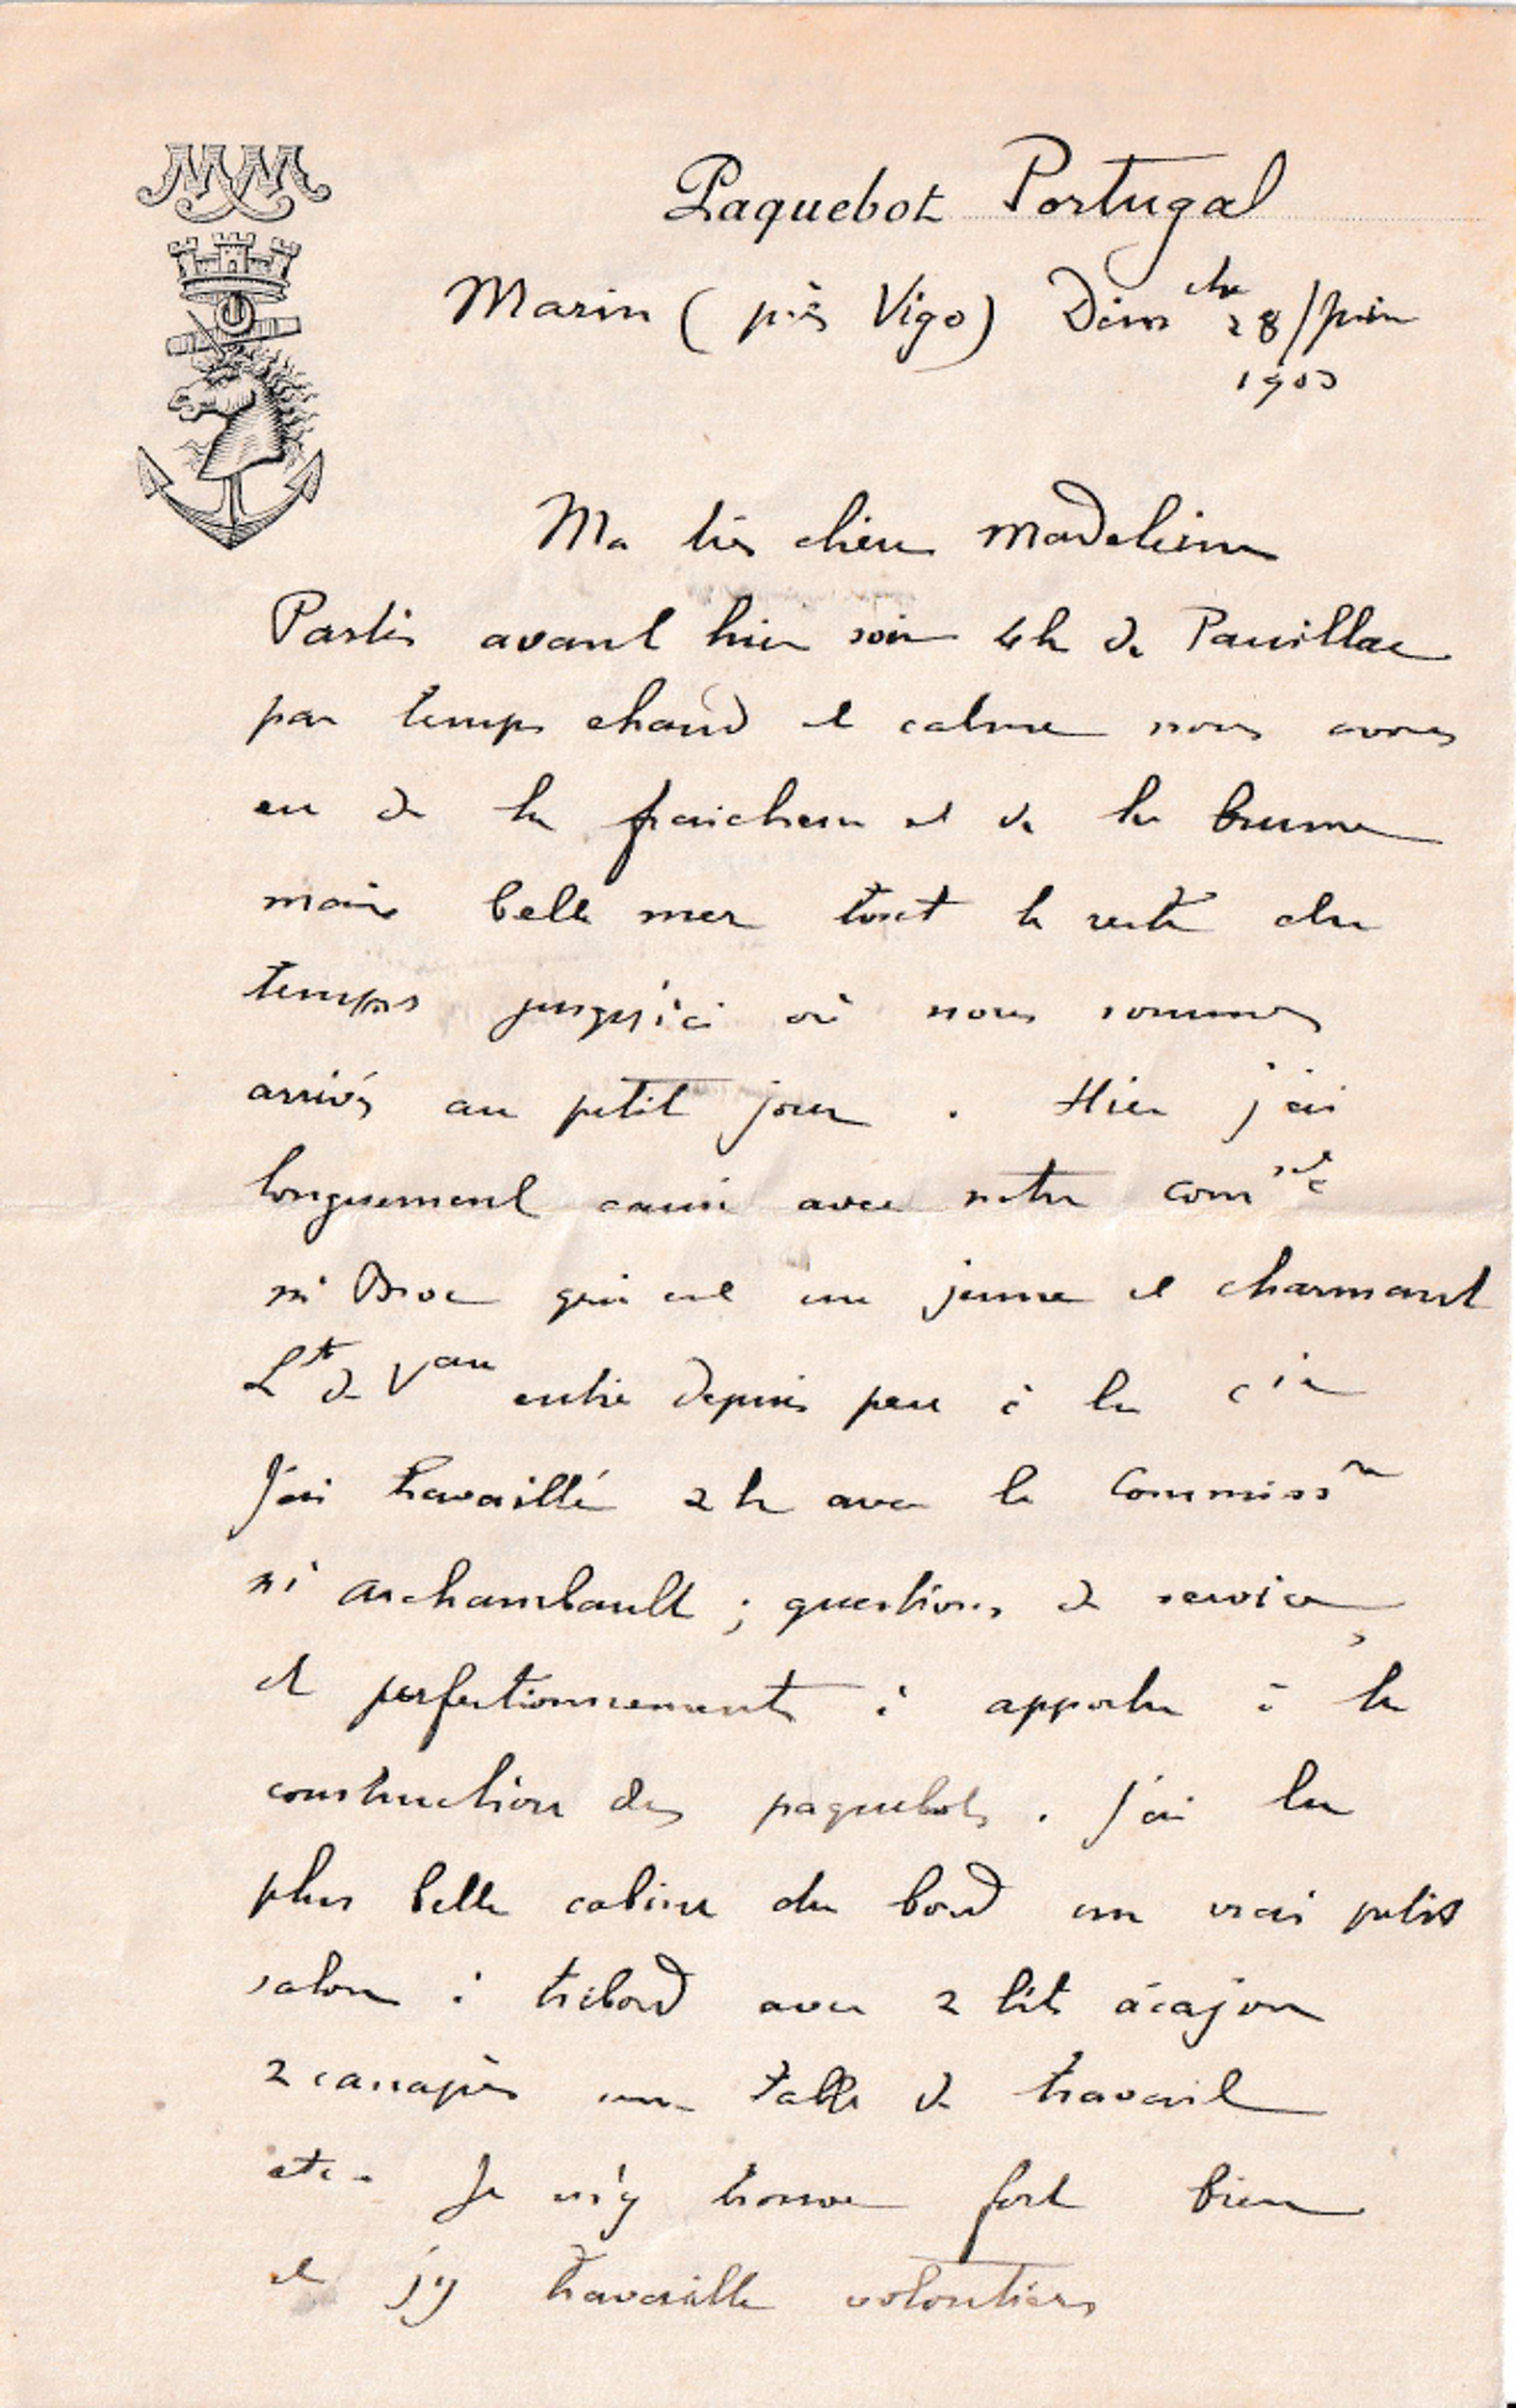 MM
Paquebot Portugal
Marin (près Vigo) Dim che 28/juin
1903
Ma très chère Madeleine
Partis avant hier soir 4h de Pauillac
par temps chaud et calme nous avons
eu de la fraicheur et de la brume
mais belle mer tout le reste du
temps jusqu'ici où nous sommes
arrivés au petit jour. Hier j'ai
longuement causé avec notre com
Mr Broc qui est un jeune et charmant
Lt de Vau entré depuis peu à la Cie
J'ai travaillé 2h avec le Commissre
Mr Archambault ; questions de service,
et perfectionnements à apporter à la
construction des paquebots. J'ai la
plus belle cabine du bord un vrai petit
salon à tribord avec 2 lits acajou
2 canapés une table de travail
etc. Je m'y trouve fort bien
et j'y travaille volontiers